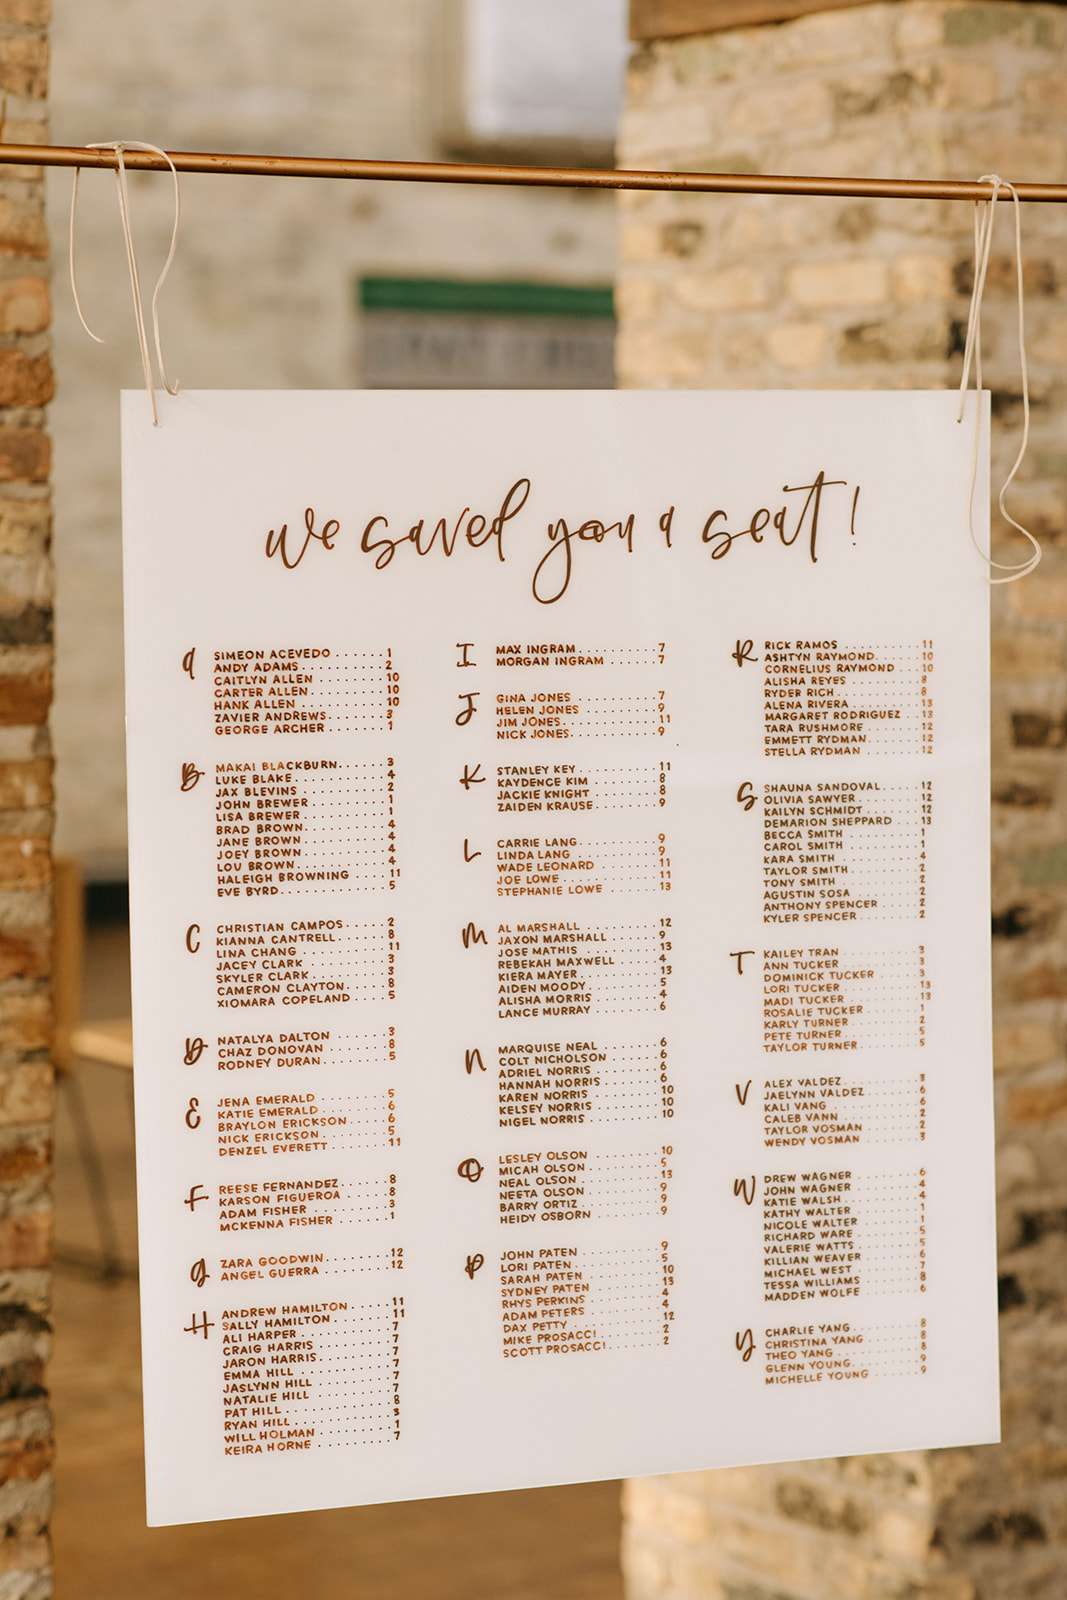 we saved you a seat!
A
SIMEON ACEVEDO ...... 1
ANDY ADAMS ......... 2
CAITLYN ALLEN ....... 10
CARTER ALLEN ........ 10
HANK ALLEN ......... 10
ZAVIER ANDREWS ...... 3
GEORGE ARCHER ...... 1
B
MAKAI BLACKBURN ..... 3
LUKE BLAKE ......... 4
JAX BLEVINS ........ 2
JOHN BREWER ........ 1
LISA BREWER ........ 1
BRAD BROWN ......... 4
JANE BROWN ......... 4
JOEY BROWN ......... 4
LOU BROWN ......... 4
HALEIGH BROWNING .... 11
EVE BYRD ........... 5
C
CHRISTIAN CAMPOS .... 2
KIANNA CANTRELL ..... 8
LINA CHANG ......... 11
JACEY CLARK ........ 3
SKYLER CLARK ....... 3
CAMERON CLAYTON ..... 8
XIOMARA COPELAND .... 5
D
NATALYA DALTON ...... 3
CHAZ DONOVAN ....... 8
RODNEY DURAN ....... 5
E
JENA EMERALD ....... 5
KATIE EMERALD ...... 6
BRAYLON ERICKSON .... 6
NICK ERICKSON ...... 5
DENZEL EVERETT ..... 11
F
REESE FERNANDEZ ..... 8
KARSON FIGUEROA ..... 8
ADAM FISHER ........ 3
MCKENNA FISHER ..... 1
G
ZARA GOODWIN ....... 12
ANGEL GUERRA ....... 12
H
ANDREW HAMILTON ..... 11
SALLY HAMILTON ...... 11
ALI HARPER ......... 7
CRAIG HARRIS ....... 7
JARON HARRIS ....... 7
EMMA HILL .......... 7
JASLYNN HILL ....... 7
NATALIE HILL ....... 7
PAT HILL ........... 8
RYAN HILL .......... 3
WILL HOLMAN ........ 1
KEIRA HORNE ........ 7
I
MAX INGRAM ......... 7
MORGAN INGRAM ...... 7
J
GINA JONES ......... 7
HELEN JONES ........ 9
JIM JONES .......... 11
NICK JONES ......... 9
K
STANLEY KEY ........ 11
KAYDENCE KIM ....... 8
JACKIE KNIGHT ...... 8
ZAIDEN KRAUSE ...... 9
L
CARRIE LANG ........ 9
LINDA LANG ......... 9
WADE LEONARD ....... 11
JOE LOWE ........... 11
STEPHANIE LOWE ..... 13
M
AL MARSHALL ........ 12
JAXON MARSHALL ..... 9
JOSE MATHIS ........ 13
REBEKAH MAXWELL .... 4
KIERA MAYER ........ 13
AIDEN MOODY ........ 5
ALISHA MORRIS ...... 4
LANCE MURRAY ....... 6
N
MARQUISE NEAL ...... 6
COLT NICHOLSON ..... 6
ADRIEL NORRIS ...... 6
HANNAH NORRIS ...... 6
KAREN NORRIS ....... 10
KELSEY NORRIS ...... 10
NIGEL NORRIS ....... 10
O
LESLEY OLSON ....... 10
MICAH OLSON ........ 5
NEAL OLSON ......... 13
NEETA OLSON ........ 9
BARRY ORTIZ ........ 9
HEIDY OSBORN ....... 9
P
JOHN PATEN ......... 9
LORI PATEN ......... 5
SARAH PATEN ........ 10
SYDNEY PATEN ....... 13
RHYS PERKINS ....... 4
ADAM PETERS ........ 4
DAX PETTY .......... 12
MIKE PROSACCI ...... 2
SCOTT PROSACCI ..... 2
R
RICK RAMOS ......... 11
ASHTYN RAYMOND ..... 10
CORNELIUS RAYMOND ... 10
ALISHA REYES ....... 8
RYDER RICH ......... 8
ALENA RIVERA ....... 13
MARGARET RODRIGUEZ .. 13
TARA RUSHMORE ...... 12
EMMETT RYDMAN ...... 12
STELLA RYDMAN ...... 12
S
SHAUNA SANDOVAL .... 12
OLIVIA SAWYER ...... 12
KAILYN SCHMIDT ..... 12
DEMARION SHEPPARD ... 13
BECCA SMITH ........ 1
CAROL SMITH ........ 1
KARA SMITH ......... 4
TAYLOR SMITH ....... 2
TONY SMITH ......... 2
AGUSTIN SOSA ....... 2
ANTHONY SPENCER .... 2
KYLER SPENCER ...... 2
T
KAILEY TRAN ........ 3
ANN TUCKER ......... 3
DOMINICK TUCKER .... 3
LORI TUCKER ........ 13
MADI TUCKER ........ 13
ROSALIE TUCKER ..... 1
KARLY TURNER ....... 2
PETE TURNER ........ 5
TAYLOR TURNER ...... 5
V
ALEX VALDEZ ........ 3
JAELYNN VALDEZ ..... 6
KALI VANG .......... 6
CALEB VANN ......... 2
TAYLOR VOSMAN ...... 2
WENDY VOSMAN ....... 3
W
DREW WAGNER ........ 6
JOHN WAGNER ........ 4
KATIE WALSH ........ 4
KATHY WALTER ....... 1
NICOLE WALTER ...... 1
RICHARD WARE ....... 5
VALERIE WATTS ...... 5
KILLIAN WEAVER ..... 6
MICHAEL WEST ....... 7
TESSA WILLIAMS ..... 8
MADDEN WOLFE ....... 6
Y
CHARLIE YANG ....... 8
CHRISTINA YANG ..... 8
THEO YANG .......... 8
GLENN YOUNG ........ 9
MICHELLE YOUNG ..... 9